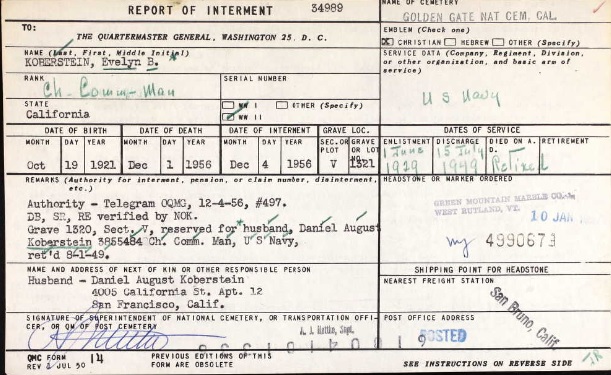 REPORT OF INTERMENT 34989
NAME OF CEMETERY
GOLDEN GATE NAT CEM. CAL.
TO:
THE QUARTERMASTER GENERAL, WASHINGTON 25 D. C.
EMBLEM (Check one)
CHRISTIAN HEBREW OTHER (Specify)
NAME (Last, First, Middle Initial)
KOBERSTEIN, Evelyn B. *
SERVICE DATA (Company, Regiment, Division, or other organization, and basic arm of service)
US Navy
RANK
Ch. Comm-Man
SERIAL NUMBER
STATE
California
WW I OTHER (Specify)
WW II
DATE OF BIRTH DATE OF DEATH DATE OF INTERMENT GRAVE LOC. DATES OF SERVICE
MONTH DAY YEAR MONTH DAY YEAR MONTH DAY YEAR SEC. OR PLOT GRAVE OR LOT NO. ENLISTMENT DISCHARGE DIED ON A. D. RETIREMENT
Oct 19 1921 Dec 1 1956 Dec 4 1956 V 1321 1 June 1929 15 July 1949 Retired
REMARKS (Authority for interment, pension, or claim number, disinterment, etc.)
Authority - Telegram OQMG, 12-4-56, #497.
DB, SR, RE verified by NOK.
Grave 1320, Sect. V, reserved for *husband, Daniel August
Koberstein 3855484 Ch. Comm. Man, U S Navy,
ret'd 8-1-49.
HEADSTONE OR MARKER ORDERED
GREEN MOUNTAIN MARBLE CO.
WEST RUTLAND, VT.
10 JAN
my 4990679
NAME AND ADDRESS OF NEXT OF KIN OR OTHER RESPONSIBLE PERSON
Husband - Daniel August Koberstein
4005 California St. Apt. 12
San Francisco, Calif.
SHIPPING POINT FOR HEADSTONE
NEAREST FREIGHT STATION
San Bruno, Calif.
SIGNATURE OF SUPERINTENDENT OF NATIONAL CEMETERY, OR TRANSPORTATION OFFICER, OR QM OF POST CEMETERY
POST OFFICE ADDRESS
POSTED
QMC FORM 14
REV 2 JUL 50
PREVIOUS EDITIONS OF THIS
FORM ARE OBSOLETE
SEE INSTRUCTIONS ON REVERSE SIDE